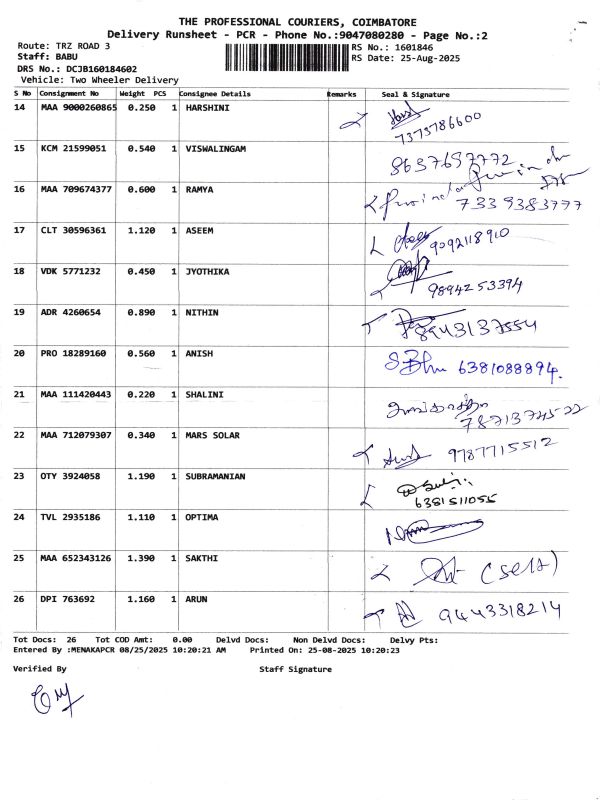 THE PROFESSIONAL COURIERS, COIMBATORE
Delivery Runsheet - PCR - Phone No.:9047080280 - Page No.:2
Route: TRZ ROAD 3 RS No.: 1601846
Staff: BABU RS Date: 25-Aug-2025
DRS No.: DCJB160184602
Vehicle: Two Wheeler Delivery
S No Consignment No Weight PCS Consignee Details Remarks Seal & Signature
14 MAA 9000260865 0.250 1 HARSHINI
7373786600
15 KCM 21599051 0.540 1 VISWALINGAM
8637657772
16 MAA 709674377 0.600 1 RAMYA
7339383777
17 CLT 30596361 1.120 1 ASEEM
9092118910
18 VDK 5771232 0.450 1 JYOTHIKA
9894253394
19 ADR 4260654 0.890 1 NITHIN
8943137554
20 PRO 18289160 0.560 1 ANISH
6381088894.
21 MAA 111420443 0.220 1 SHALINI
22 MAA 712079307 0.340 1 MARS SOLAR
9787715512
23 OTY 3924058 1.190 1 SUBRAMANIAN
6381511055
24 TVL 2935186 1.110 1 OPTIMA
25 MAA 652343126 1.390 1 SAKTHI
(self)
26 DPI 763692 1.160 1 ARUN
9443318214
Tot Docs: 26 Tot COD Amt: 0.00 Delvd Docs: Non Delvd Docs: Delvy Pts:
Entered By :MENAKAPCR 08/25/2025 10:20:21 AM Printed On: 25-08-2025 10:20:23
Verified By Staff Signature